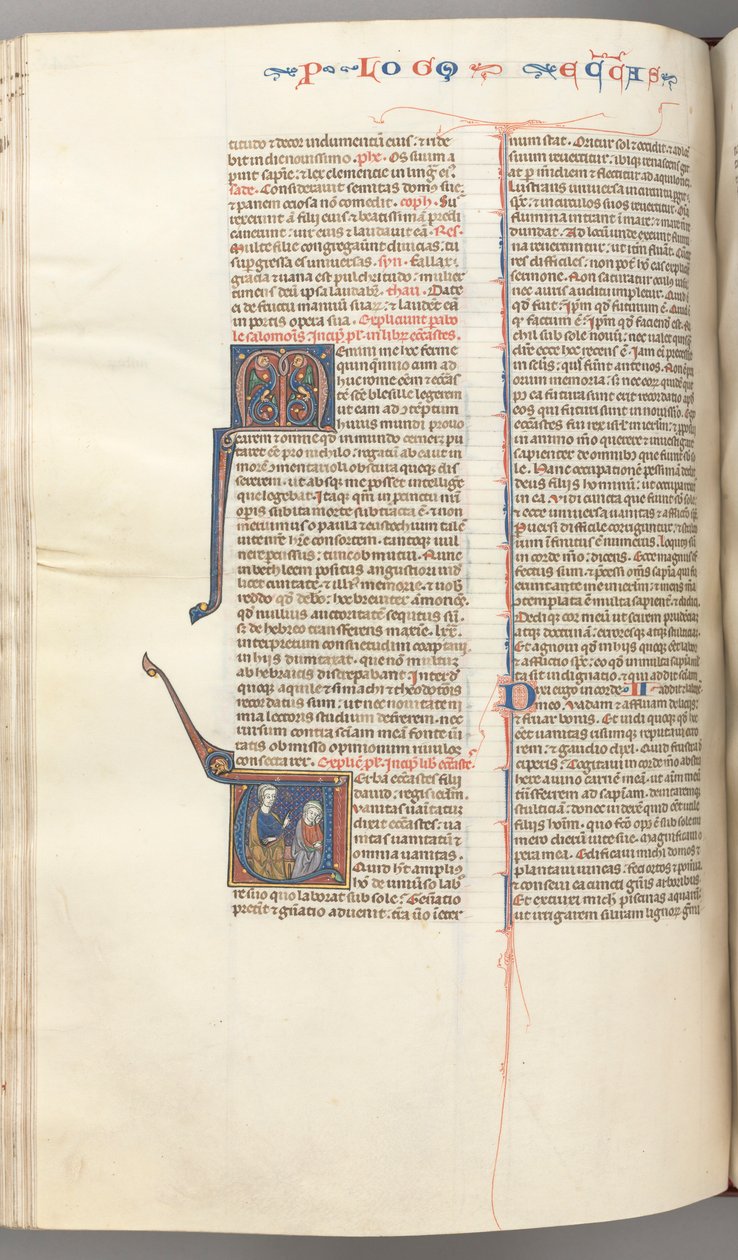 P LOGO ECCAS
titudo & decor indumentum eius: & ride
bit in die nouissimo. phe. Os suum a
peruit sapie: & lex clementie in ling ei.
sade. Considerauit semitas dom sue:
& panem ociosa non comedit. coph. Su
rexerunt filii eius & beatissimā predi
cauerunt: uir eius & laudauit eā. Res.
Multe filie congregauūt diuicias: tu
supgressa es uniuersas. syn. Fallax
gracia & uana est pulchritudo: mulier
timens deū ipsa laudabit. thau. Date
ei de fructu manuū suar: & laudent eā
in portis opera sua. Expliciunt parabo
le salomonis. Incip pl in libr eccastes.
Memini me hoc ferme
quinquennio cum ad
huc rome eēm & eccas
te sce blesille legerem
ut eam ad ctemptum
huius mundi prouo
carem & omne qd in mundo cerner pu
taret eē pro nichilo. rogatū ab ea ut in
morē cmentarioli obscura queque dis
sererem. ut absque me posset intellige
que legebat. Itaque qm in precinctu nri
opis subita morte subtracta ē: & non
meruimus o paula & eustochium talē
uite nre hre consortem. tantoque uul
nere percussus: tunc obmutui. Nunc
in bethleem positus angustiori uid
licet ciuitate: & illi memorie. & uob
reddo qd debeo: hoc breuiter āmonens.
qd nullius auctoritatē secutus sū.
s; de hebreo transferens maxie. lxx.
interpretum consuetudini coaptaui.
in hiis dumtaxat. que nō multū
ab hebraicis discrepabant. Interdū
quoque aquile & simachi & theodotiōis
recordatus sum: ut nec nouitate ni
mia lectoris studium deterrerem. nec
rursum contra sciam meā fonte ūi
tatis obmisso opinionum riuulos
consectarer. Explic pl. Incip lib eccaste.
Uerba eccastes filii
dauid. regis ierlm.
Vanitas uanitatū
dixit eccastes: ua
nitas uanitatū &
omnia uanitas.
Quid ht amplius
hō de uniuso lab
re suo quo laborat sub sole: Generatio
preterit & gnatio aduenit: tra uō ieter
num stat. Oritur sol & occidit. & ad loc
suum reuertitur: ibique renascens gir
at p midiem & flectitur ad aquilone.
Lustrans uniuersa in circuitu pergit
spc: & in circulos suos reuertitur. Oia
flumina intrant i mare: & mare nō
dundat. Ad locū unde exeunt flumi
na reuertuntur: ut iterū fluāt. Cuncte
res difficiles: non pot hō eas explicare
sermone. Non saturatur oculus uisu:
nec auris auditu impletur. Quid ē
qd fuit: Ipm qd futurum ē. Quid
qd factum ē: Ipm qd faciend est. Ni
chil sub sole nouū: nec ualet quisqm
dicere ecce hoc recens ē. Iam ei precessit
in selis. qui fūnt ante nos. Non ē pri
orum memoria: s; nec eor quidē que
postea futura sunt erit recordatio apd
eos qui futuri sunt in nouissio. Ego
eccastes fui rex isrl in ierlm: & pposui
in animo mō querere & inuestigare
sapienter de omnibus que fiunt sub so
le. Hanc occupationē pessimā dedit
deus filiis hominū: ut occuparent
in ea. Vidi cuncta que fiunt sb sole
& ecce uniuersa uanitas & afflictio spc.
Peruersi difficile coriguntur: & stulto
rum ifinitus ē numerus. Locutus sū
in corde mō: dicens. Ecce magnus ef
fectus sum. & precessi oms sapia qui fu
erunt ante me in ierlm: & mens mea
ctemplata ē multa sapienter & didici.
Dedique cor meū ut scirem prudenciā
atque doctrinā: erroresque atque stulticiā.
Et agnoui qd in hiis quoque eet labor
& afflictio spc: eo qd in multa sapia mul
ta sit indignatio. & qui addit sciam
Dixi ergo in corde II addit & laborē.
meo. Vadam & affluam deliciis:
& fruar bonis. Et uidi quoque qd hoc
eet uanitas. risumque reputaui erro
rem: & gaudio dixi. Quid frustra d
ciperis: Cogitaui in corde mō abstra
here a uino carnē meā. ut aīm meā
tnsferrem ad sapiam. deuitaremque
stulticiā: donec uiderē quid eet utile
filiis hoīm. quo fco opus ē sub sole nu
mero dierū uite sue. Magnificaui o
pera mea. Edificaui michi domos &
plantaui uineas: feci ortos & pomia.
& conseui ea cuncti gnis arboribus.
Et extruxi mich piscinas aquar.
ut irrigarem siluam lignor gmi